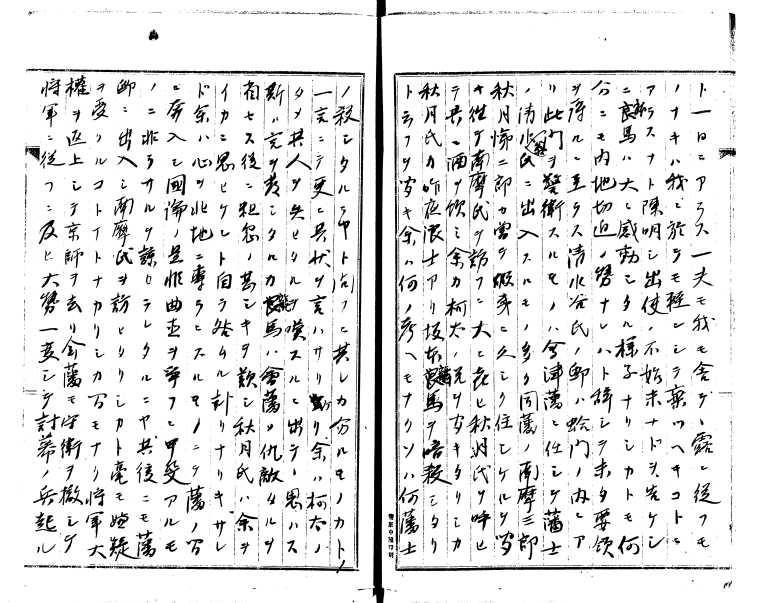 ト一日ニアラス一夫モ我モ舎デ露ニ従フモ
ノナキハ我ニ於テモ軽シシラ棄ツヘキコトニ
アラスナト陳明シ出使ノ不始末ナドヲ告ケシ
ニ良馬ハ大ニ感動シタル様子ナリシカトモ何
分ニモ内地切迫ノ勢ナレハト辞シテ未タ要領
ヲ得ルニ至ラス清水谷氏ノ邸ハ蛤門ノ内ニア
リ此門ヲ警衛スルモノハ会津藩ニ任シケ藩士
ノ清水谷氏ニ出入スルモノ多ク同藩ノ南摩三郎
秋月悌二郎カ曽ヲ蝦夷ニ久シク住シケルヲ聞
キ往テ南摩氏ヲ訪フニ大ニ喜ヒ秋月氏ヲ呼ヒ
テ共ニ酒ヲ飲ミ余カ柯太ノ説ヲ聞キタリシカ
秋月氏カ昨夜浪士アリ坂本良馬ヲ暗殺シタリ
ト云フヲ聞キ余ハ何ノ考ヘモナクソハ何藩士
ノ殺シタルラ中ト問フニ其レカ分ルモノカトノ
一言ニテ更ニ其状ヲ言ハサリ余ハ柯太ノ
タメ其人ヲ失ヒタルヲ嘆スルニ出テ思ハス
斯ハ言ヲ発シタルカ良馬ハ會藩ノ仇敵タルヲ
省セス後ニ粗忽ノ甚シキヲ歎シ秋月氏ハ余ヲ
イカニ思ヒケント自ラ咎ムル計リナリキサレ
ド余ハ心ヲ北地ニ専ラニスルモノニテ藩ノ為
ニ奔入シ國論ノ是非曲直ヲ争フニ甲斐アルモ
ノニ非ラサルヲ諒セラレタルニヤ其後ニモ藩
邸ニ出入シ南摩氏ヲ訪ヒタリシカト毫モ嫌疑
ヲ受ノルコトイトナカリシカ間モナク将軍大
權ヲ返上シテ京師ヲ去リ会藩モ守衛ヲ撤シケ
将軍ニ従フニ及ヒ大勢一変シテ討幕ノ兵起ル